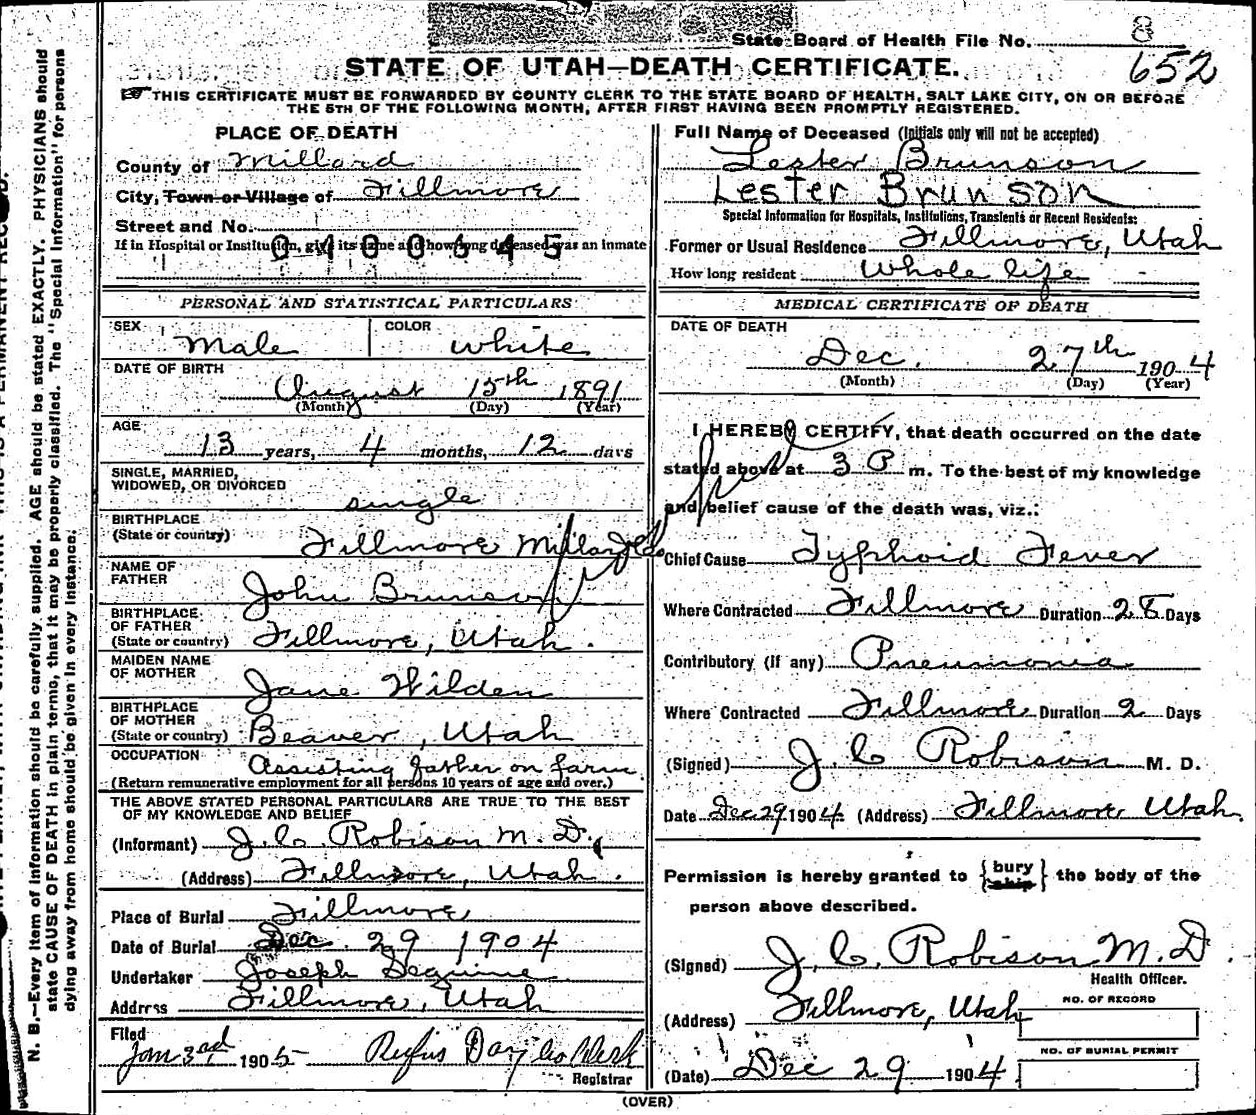 State Board of Health File No. 8
652
STATE OF UTAH—DEATH CERTIFICATE.
THIS CERTIFICATE MUST BE FORWARDED BY COUNTY CLERK TO THE STATE BOARD OF HEALTH, SALT LAKE CITY, ON OR BEFORE
THE 5TH OF THE FOLLOWING MONTH, AFTER FIRST HAVING BEEN PROMPTLY REGISTERED.
N. B.—Every item of information should be carefully supplied. AGE should be stated EXACTLY. PHYSICIANS should
state CAUSE OF DEATH in plain terms, that it may be properly classified. The "Special Information" for persons
dying away from home should be given in every instance.
PLACE OF DEATH
County of Millard
City, Town or Village of Fillmore
Street and No.
If in Hospital or Institution, give its name and how long deceased was an inmate
0400645
Full Name of Deceased (Initials only will not be accepted)
Lester Brunson
Lester Brunson
Special Information for Hospitals, Institutions, Transients or Recent Residents:
Former or Usual Residence Fillmore, Utah
How long resident whole life
PERSONAL AND STATISTICAL PARTICULARS
SEX Male COLOR white
DATE OF BIRTH
August 15th 1891
(Month) (Day) (Year)
AGE
13 years, 4 months, 12 days
SINGLE, MARRIED,
WIDOWED, OR DIVORCED
single
BIRTHPLACE
(State or country)
Fillmore Millard
NAME OF
FATHER
John Brunson
BIRTHPLACE
OF FATHER
(State or country) Fillmore, Utah.
MAIDEN NAME
OF MOTHER
Jane Wilden
BIRTHPLACE
OF MOTHER
(State or country) Beaver, Utah
OCCUPATION Assisting father on farm
(Return remunerative employment for all persons 10 years of age and over.)
THE ABOVE STATED PERSONAL PARTICULARS ARE TRUE TO THE BEST
OF MY KNOWLEDGE AND BELIEF
(Informant) J. C. Robison M. D.
(Address) Fillmore, Utah.
Place of Burial Fillmore
Date of Burial Dec. 29 1904
Undertaker Joseph Seguine
Address Fillmore, Utah
Filed
Jan 3rd 1905 Rufus Day Co Clerk
Registrar
MEDICAL CERTIFICATE OF DEATH
DATE OF DEATH
Dec. 27th 1904
(Month) (Day) (Year)
I HEREBY CERTIFY, that death occurred on the date
stated above at 3 P m. To the best of my knowledge
and belief cause of the death was, viz.:
Chief Cause Typhoid Fever
Where Contracted Fillmore Duration 28 Days
Contributory (If any) Pneumonia
Where Contracted Fillmore Duration 2 Days
(Signed) J. C Robison M. D.
Date Dec 29 1904 (Address) Fillmore Utah.
Permission is hereby granted to {bury
ship} the body of the
person above described.
(Signed) J. C. Robison M. D.
Health Officer.
(Address) Fillmore, Utah
NO. OF RECORD
NO. OF BURIAL PERMIT
(Date) Dec 29 1904
(OVER)